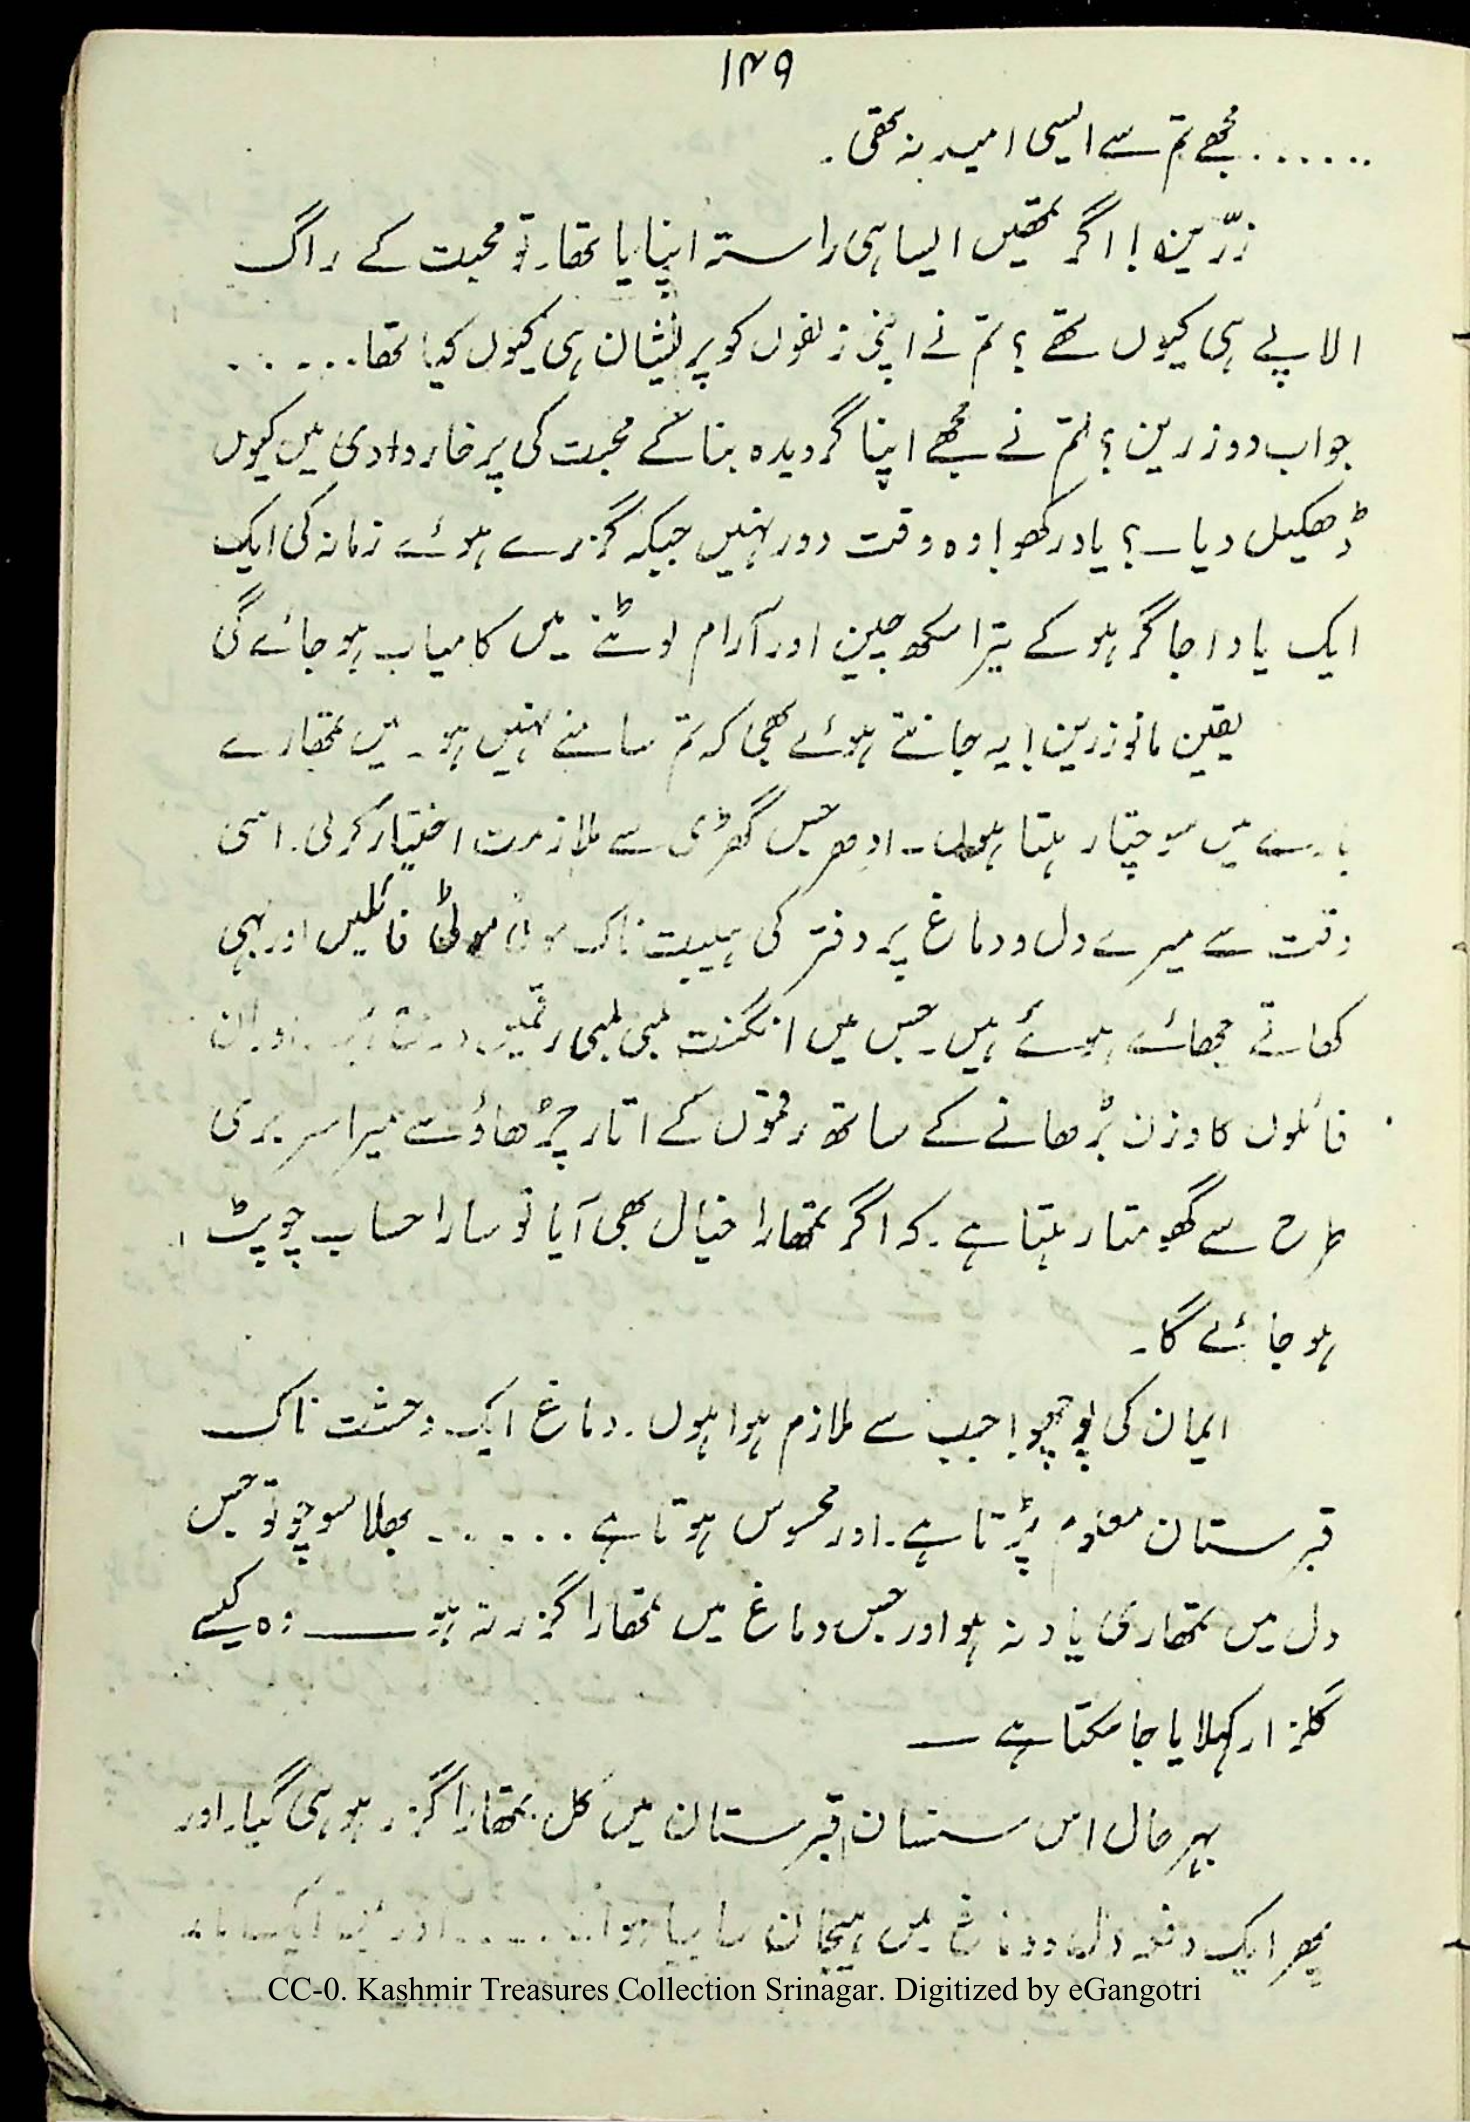 ۱۴۹
....... مجھے تم سے ایسی امید نہ تھی۔
زرّینہ! اگر تمھیں ایسا ہی راستہ اپنایا تھا۔ تو محبت کے راگ
الاپے ہی کیوں تھے؟ تم نے اپنی زلفوں کو پریشان ہی کیوں کیا تھا.....
جواب دو زرین؟ تم نے مجھے اپنا گردیدہ بنا کے محبت کی پرخار وادی میں کیوں
ڈھکیل دیا۔؟ یاد رکھو! وہ وقت دور نہیں جبکہ گزرے ہوئے زمانہ کی ایک
ایک یاد اجاگر ہو کے تیرا سکھ چین اور آرام لوٹنے میں کامیاب ہو جائے گی
یقین مانو زرین! یہ جانتے ہوئے بھی کہ تم سامنے نہیں ہو۔ میں تمھارے
بارے میں سوچتا رہتا ہوں۔ ادھر جس گھڑی سے ملازمت اختیار کر لی۔ اسی
وقت سے میرے دل و دماغ پر دفتر کی ہیبت ناک موٹی موٹی فائلیں اور بہی
کھاتے چھائے ہوئے ہیں۔ جس میں انگنت لمبی لمبی رقمیں اور ان
فائلوں کا وزن بڑھانے کے ساتھ رقموں کے اتار چڑھاؤ سے میرا سر بری
طرح سے گھومتا رہتا ہے۔ کہ اگر تمھارا خیال بھی آیا تو سارا حساب چوپٹ
ہو جائے گا۔
ایمان کی پوچھو! جب سے ملازم ہوا ہوں۔ دماغ ایک وحشت ناک
قبرستان معلوم پڑتا ہے۔ اور محسوس ہوتا ہے ..... بھلا سوچو تو جس
دل میں تمھاری یاد نہ ہو اور جس دماغ میں تمھارا گزر نہ ہو ــــ وہ کیسے
گلزار کہلایا جا سکتا ہے ــ
بہرحال اس سنسان قبرستان میں کل تمھارا گزر ہو ہی گیا۔ اور
پھر ایک دفعہ دل و دماغ میں ہیجان سا بپا ہوا...... اور
CC-0. Kashmir Treasures Collection Srinagar. Digitized by eGangotri